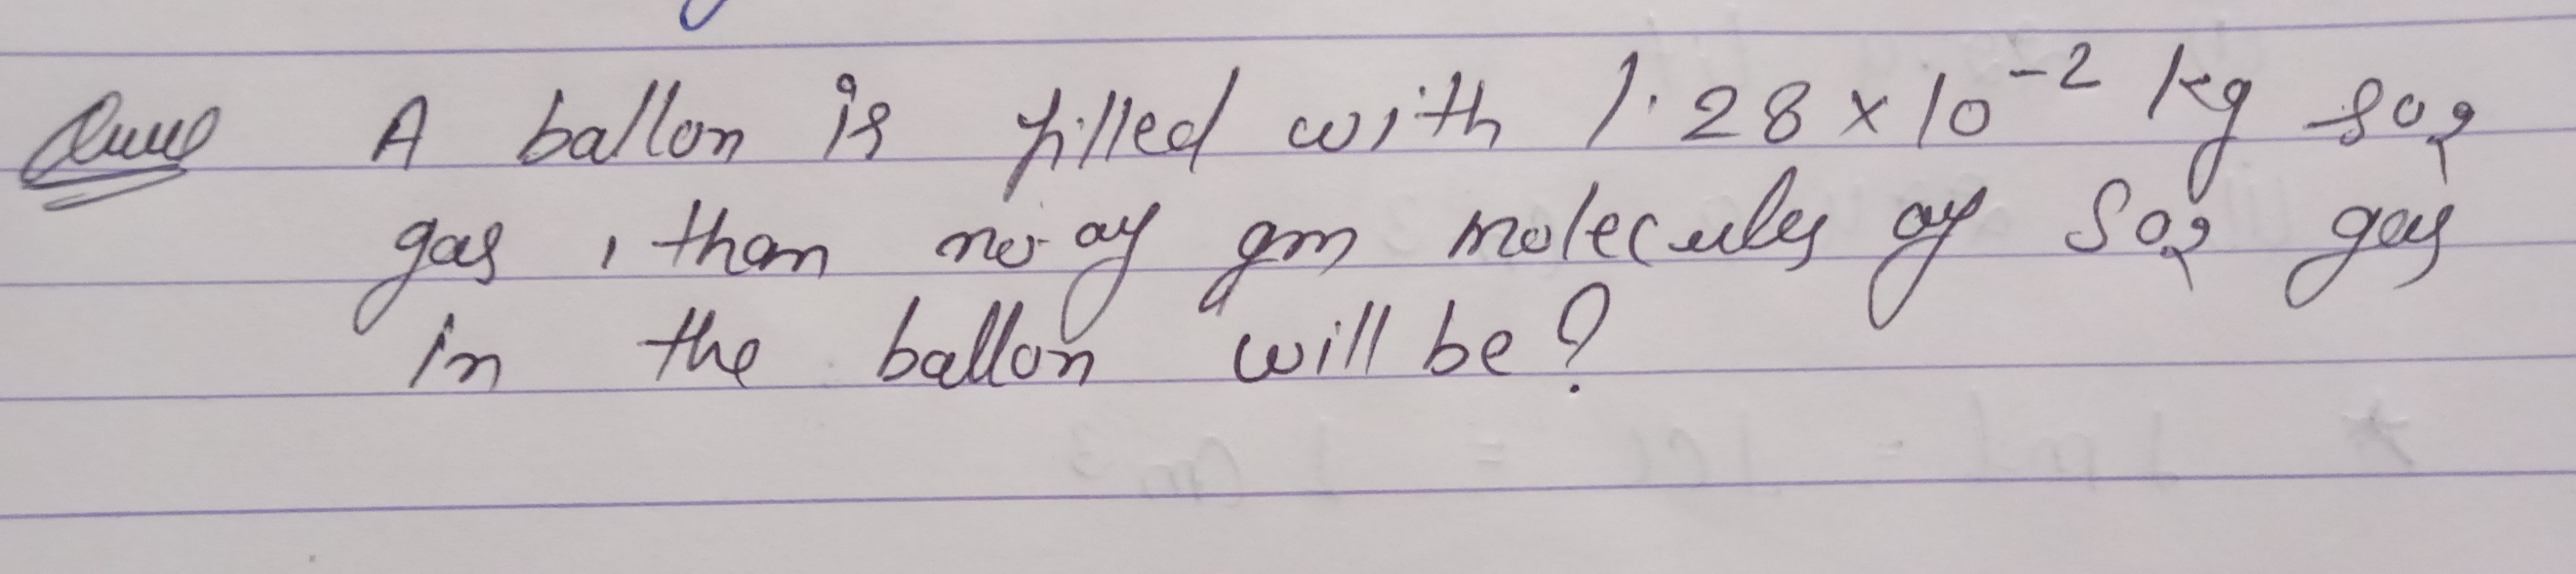 Ques A ballon is filled with 1.28 × 10⁻² kg SO₂
gas, than no. of gm molecules of SO₂ gas
in the ballon will be?